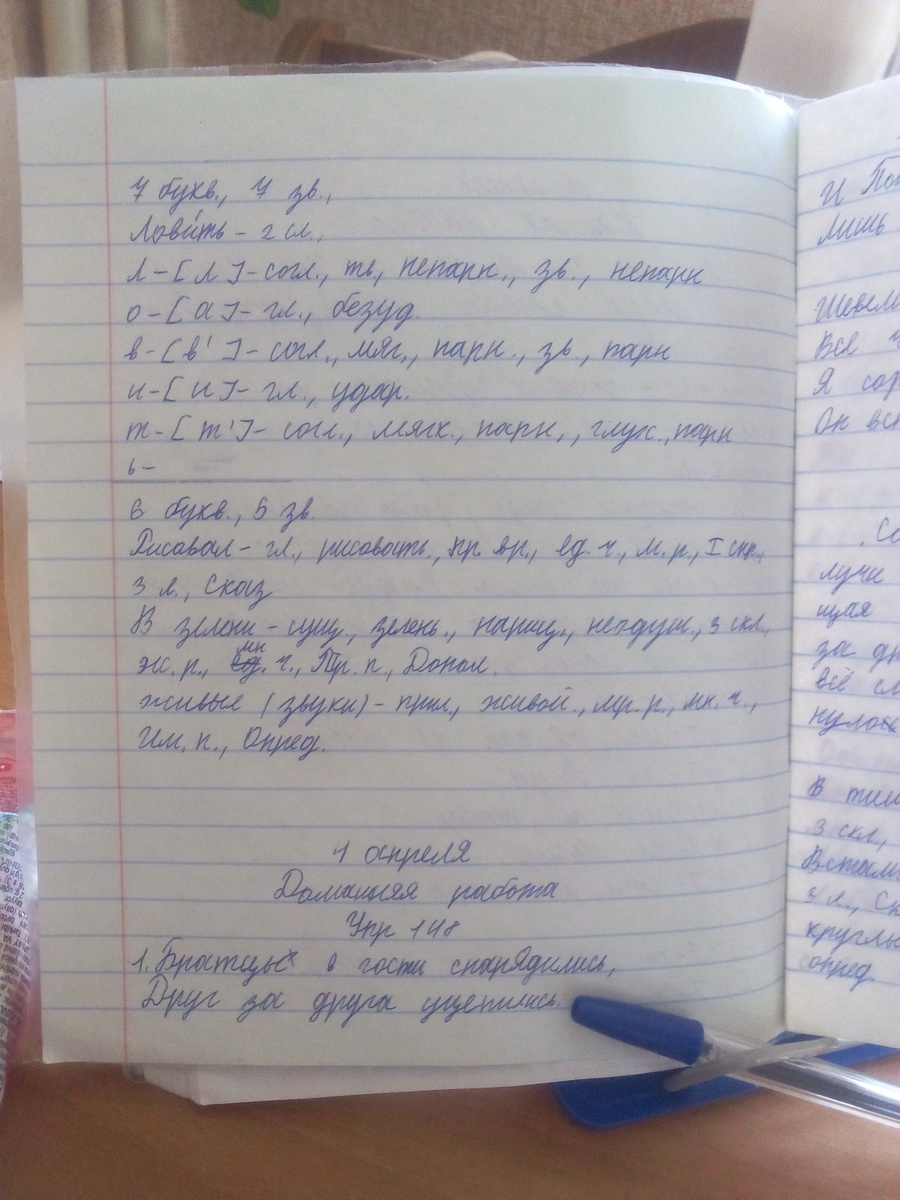 7 букв., 7 зв.,
Лови́ть - 2 сл.,
л - [ л ] - согл., тв, непарн., зв., непарн
о - [ а ] - гл., безуд.
в - [ в' ] - согл., мяг., парн., зв., парн
и - [ и ] - гл., удар.
т - [ т' ] - согл., мягк., парн,, глух., парн
ь -
6 букв., 5 зв.
Рисовал - гл., рисовать., пр. вр., ед. ч., м. р., I спр.,
3 л., Сказ
В зелени - сущ., зелень., нариц., неодуш., 3 скл.,
ж. р., ед. мн ч., Пр. п., Допол.
живые (звуки) - прил., живой., мр. р., мн. ч.,
Им. п., Опред.
1 апреля
Домашняя работа
Упр 148
1. Братцы в гости снарядились,
Друг за друга уцепились.
И
лишь
Все
Я
Он
лучи
щая
за
всё
нулось
В
3 скл.,
3 л.,
опред.